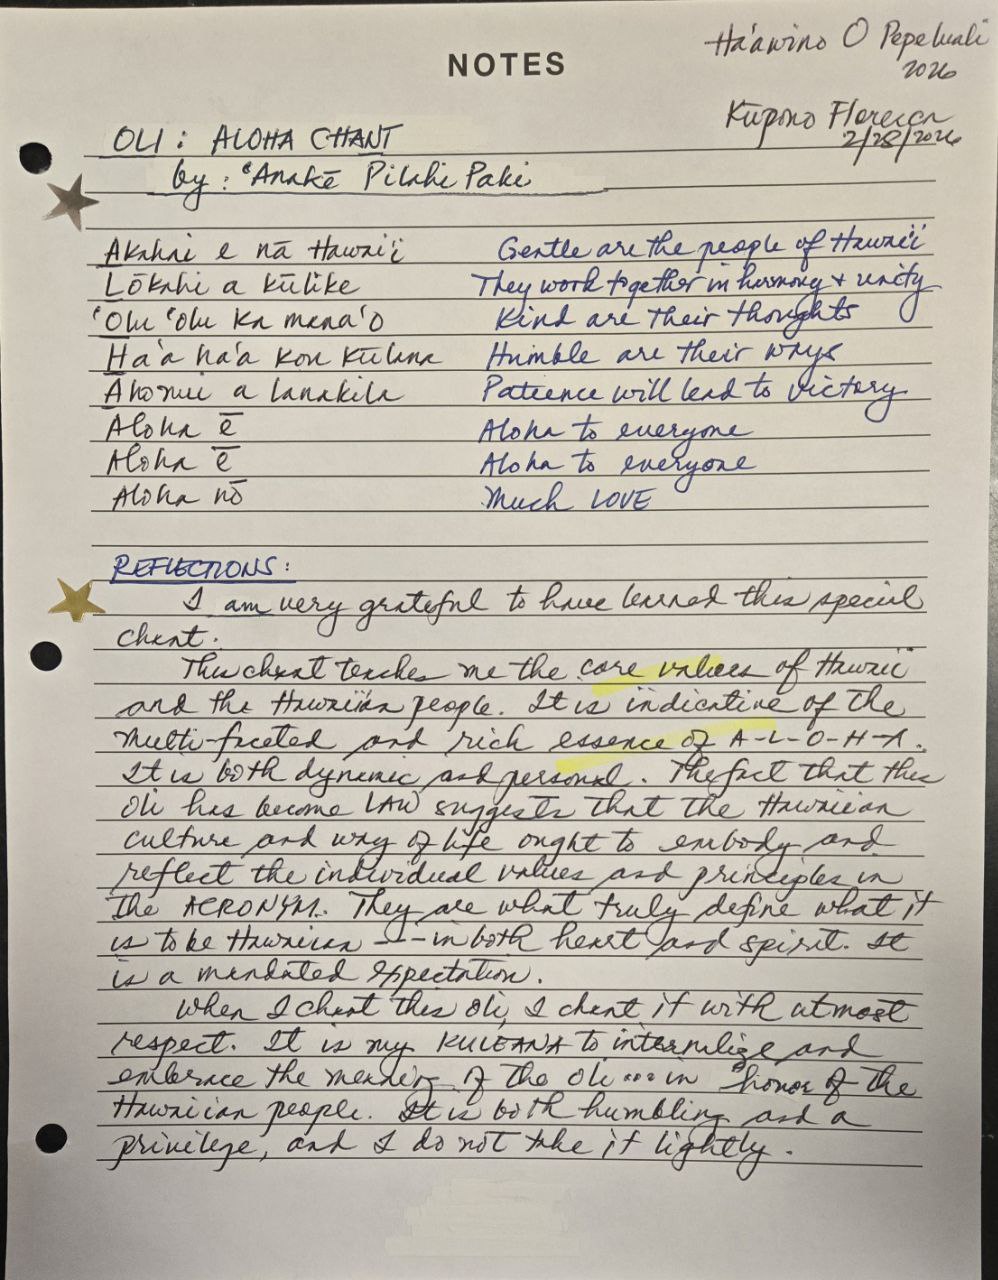 NOTES
Ha'awina O Pepeluali
2026
Kūpono
2/28/2026
OLI: ALOHA CHANT
by: 'Anakē Pilahi Paki
Akahai e nā Hawai'i Gentle are the people of Hawai'i
Lōkahi a kūlike They work together in harmony + unity
'Olu 'Olu ka mana'o Kind are their thoughts
Ha'a ha'a kou kūlana Humble are their ways
Ahonui a lanakila Patience will lead to victory
Aloha ē Aloha to everyone
Aloha ē Aloha to everyone
Aloha nō Much LOVE
REFLECTIONS:
I am very grateful to have learned this special
chant.
This chant teaches me the core values of Hawaii
and the Hawaiian people. It is indicative of the
multi-faceted and rich essence of A-L-O-H-A.
It is both dynamic and personal. The fact that this
oli has become LAW suggests that the Hawaiian
culture and way of life ought to embody and
reflect the individual values and principles in
the ACRONYM. They are what truly define what it
is to be Hawaiian -- in both heart and spirit. It
is a mandated expectation.
When I chant this oli, I chant it with utmost
respect. It is my KULEANA to internalize and
embrace the meaning of the oli ... in honor of the
Hawaiian people. It is both humbling and a
privilege, and I do not take it lightly.